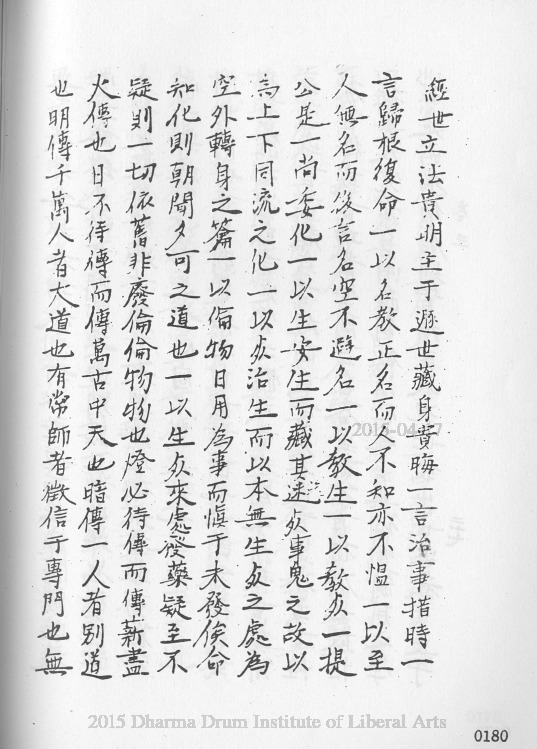 經世立法貴明至于遯世藏身貴晦一言治事措時一
言歸根復命一以名教正名而人不知亦不慍一以至
人無名而後言名空不避名一以教生一以教死一提
公是一尚委化一以生安生而藏其迷死事鬼之故以
為上下同流之化一以死治生而以本無生死之處為
空外轉身之篇一以倫物日用為事而慎于未發俟命
知化則朝聞夕可之道也一以生死來處發藥疑至不
疑則一切依舊非廢倫倫物物也燈必待傳而傳薪盡
火傳也日不待傳而傳萬古中天也暗傳一人者別道
也明傳千萬人者大道也有常師者徵信于專門也無
2015-04-17
2015 Dharma Drum Institute of Liberal Arts
0180